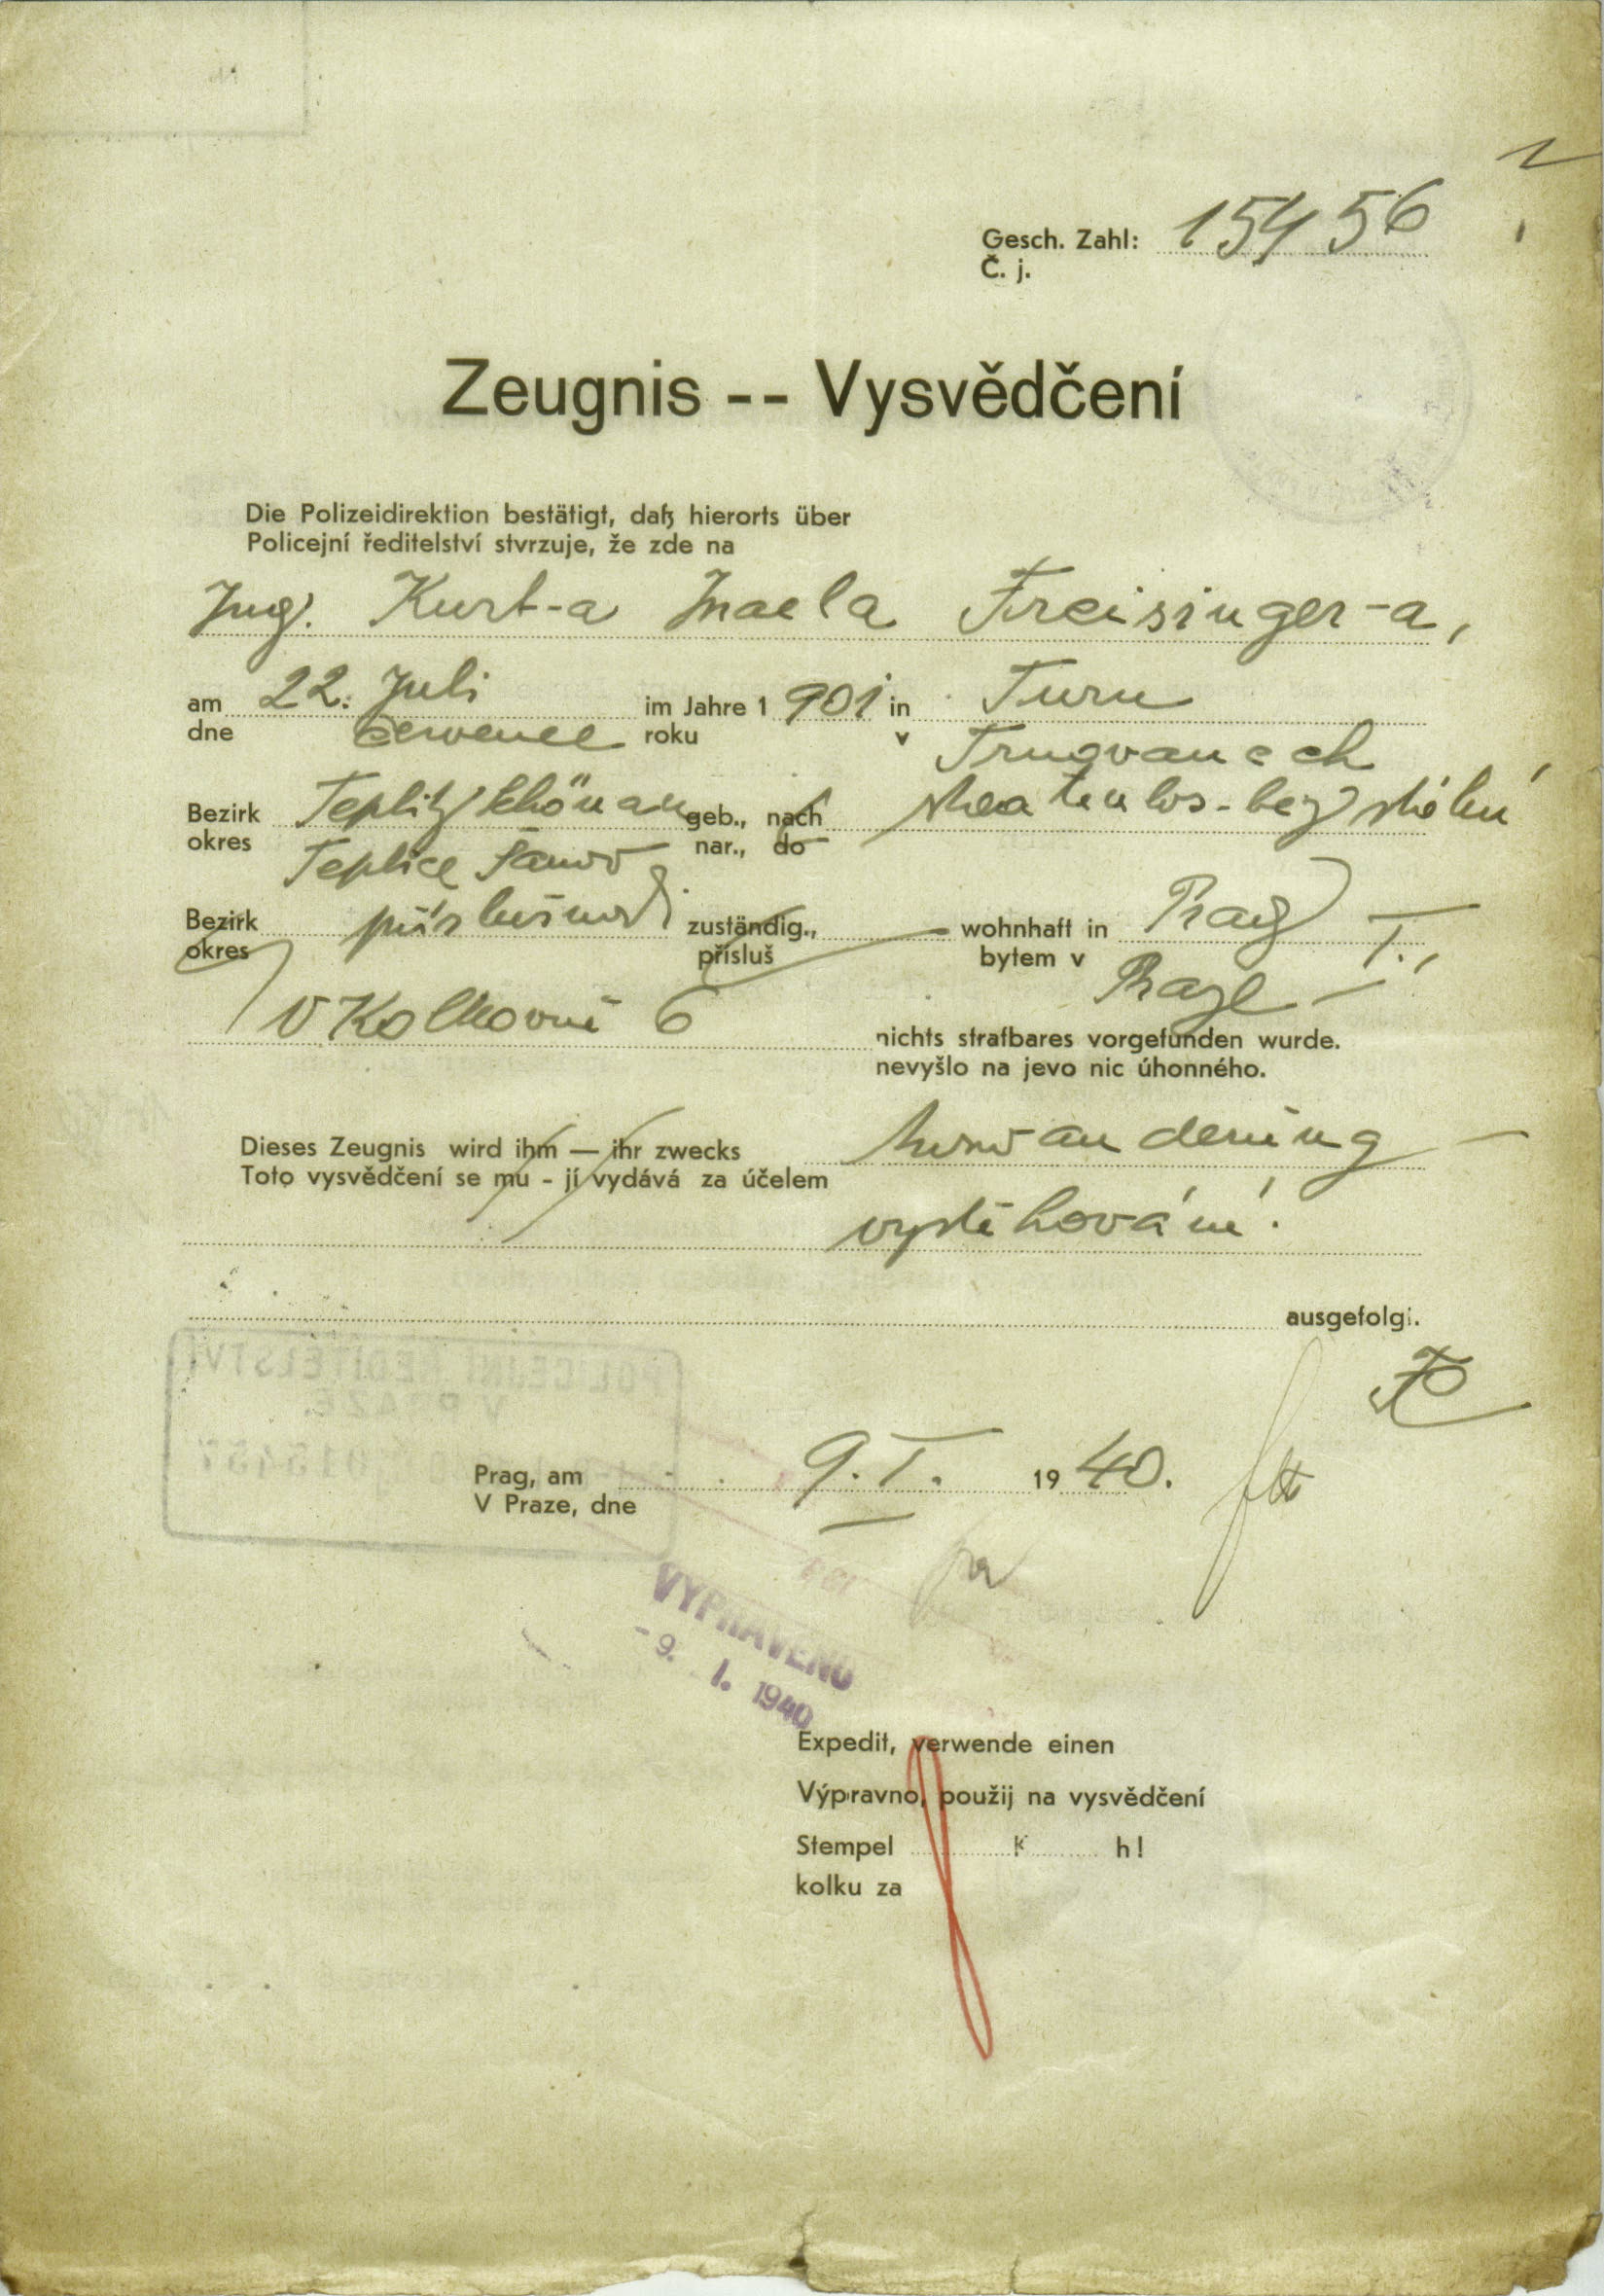 Gesch. Zahl: 15456
Č. j.
Zeugnis -- Vysvědčení
Die Polizeidirektion bestätigt, daß hierorts über
Policejní ředitelství stvrzuje, že zde na
Ing. Kurt-a Israela Freisinger-a,
am 22. Juli im Jahre 1 901 in Turn
dne července roku v Trnovanech
Bezirk Teplitz Schönau geb., nach staatenlos - bez státní
okres Teplice Šanov nar., do
Bezirk příslušnosti zuständig., wohnhaft in Prag I.,
okres přísluš bytem v Praze
V Kolkovně 6
nichts strafbares vorgefunden wurde.
nevyšlo na jevo nic úhonného.
Dieses Zeugnis wird ihm — ihr zwecks Auswanderung
Toto vysvědčení se mu - jí vydává za účelem
vystěhování.
ausgefolgt.
Prag, am 9. I. 1940.
V Praze, dne
VYPRAVENO
- 9. I. 1940
Expedit, verwende einen
Výpravno, použij na vysvědčení
Stempel K h!
kolku za